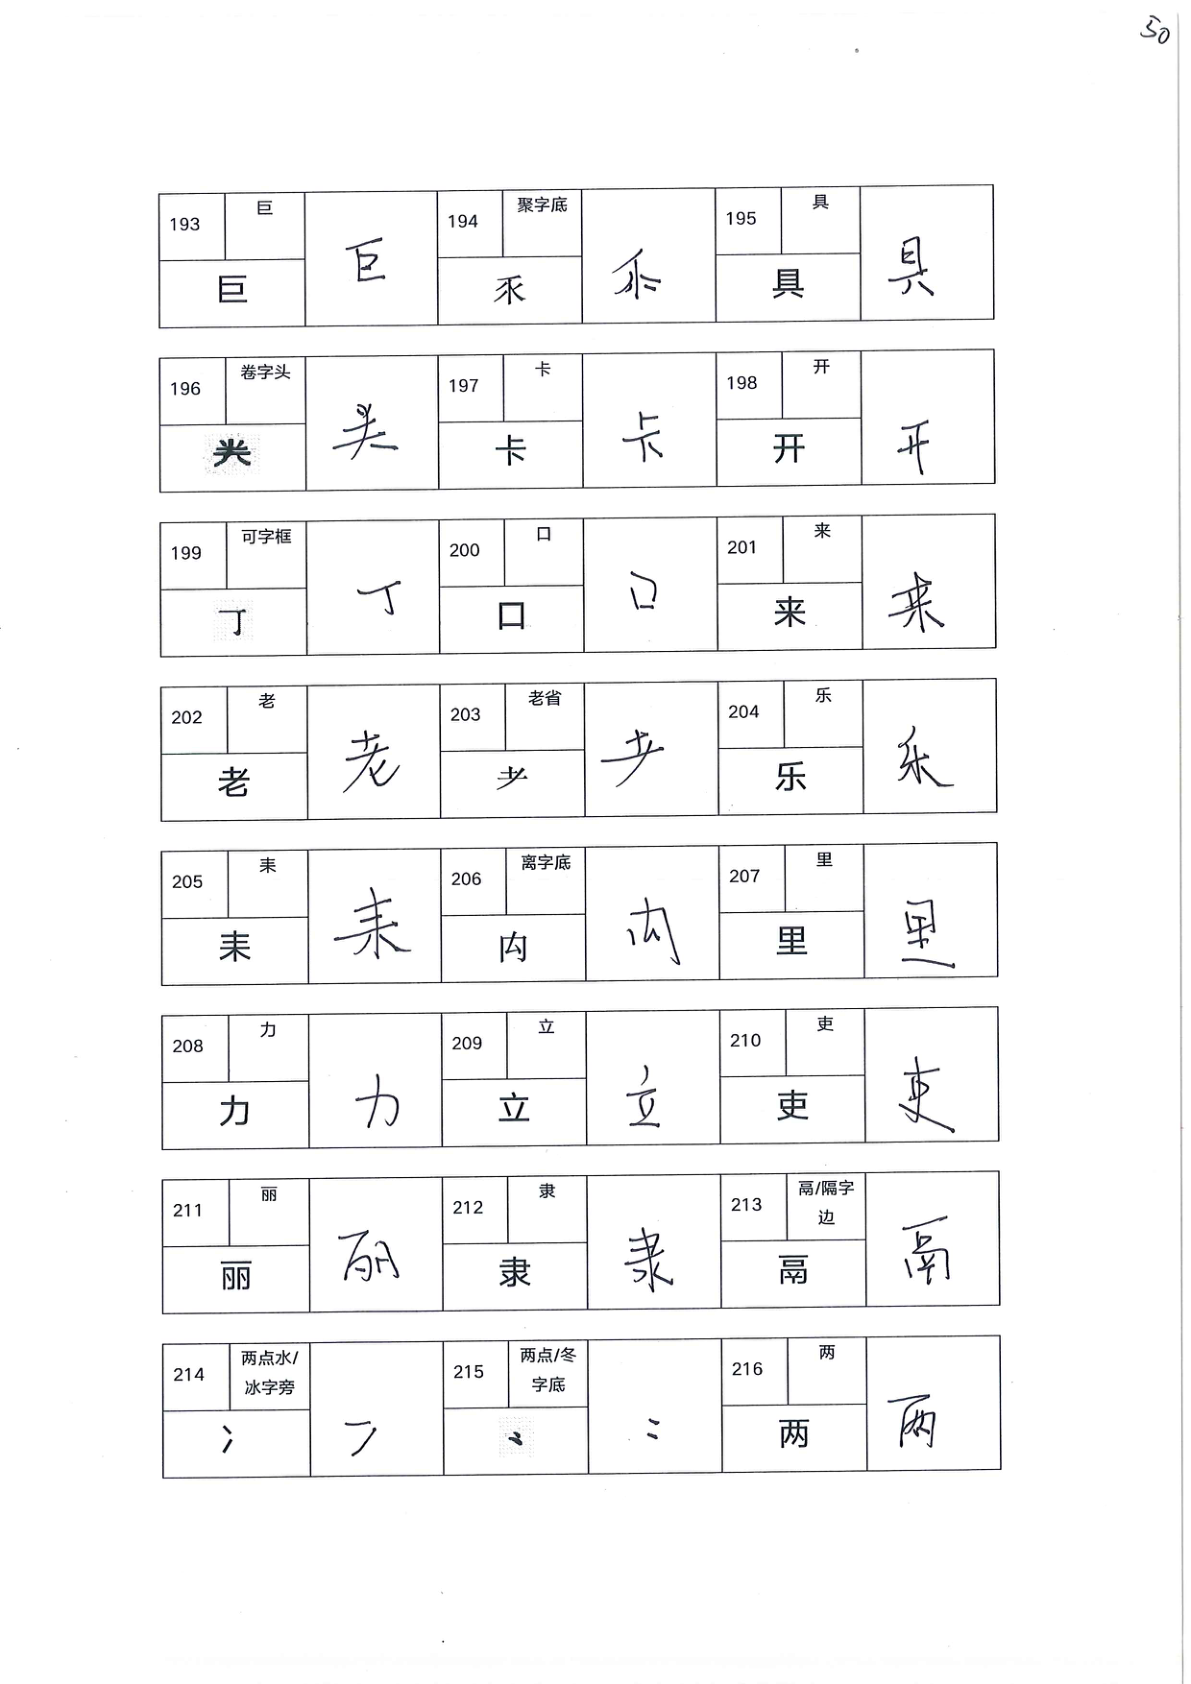 50
193 巨 巨 巨
194 聚字底 乑 乑
195 具 具 具
196 卷字头 龹 龹
197 卡 卡 卡
198 开 开 开
199 可字框 丁 丁
200 口 口 口
201 来 来 来
202 老 老 老
203 老省 耂 耂
204 乐 乐 乐
205 耒 耒 耒
206 离字底 禸 禸
207 里 里 里
208 力 力 力
209 立 立 立
210 吏 吏 吏
211 丽 丽 丽
212 隶 隶 隶
213 鬲/隔字边 鬲 鬲
214 两点水/冰字旁 冫 冫
215 两点/冬字底 ⺀ ⺀
216 两 两 两